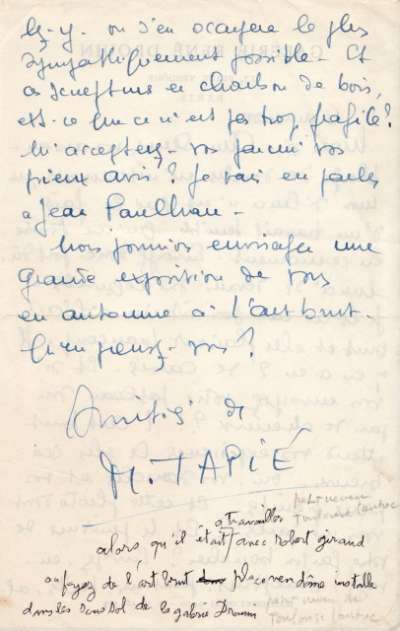 les-y. on s'en occupera le plus
sympathiquement possible. Et
ces sculptures en charbon de bois,
est-ce que ce n'est pas trop fragile?
M'acceptez-vous parmi vos
vieux amis? Je vais en parler
à Jean Paulhan.
Nous pourrions envisager une
grande exposition de vous
en automne à l'art brut.
Qu'en pensez-vous?
Amitiés de
M. TAPIÉ
a travaillé
petit neveu
Toulouse Lautrec
alors qu'il était avec Robert giraud
au foyer de l'art brut place vendôme installé
dans les sous sol de la galerie Drouin
petit neveu de
Toulouse Lautrec